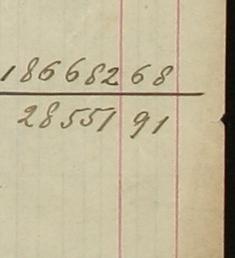 186682 68
28551 91